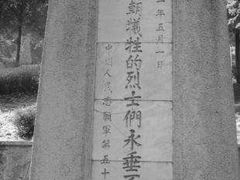 年五月一日
犧牲的烈士們永垂不
中國人民志願軍第五十